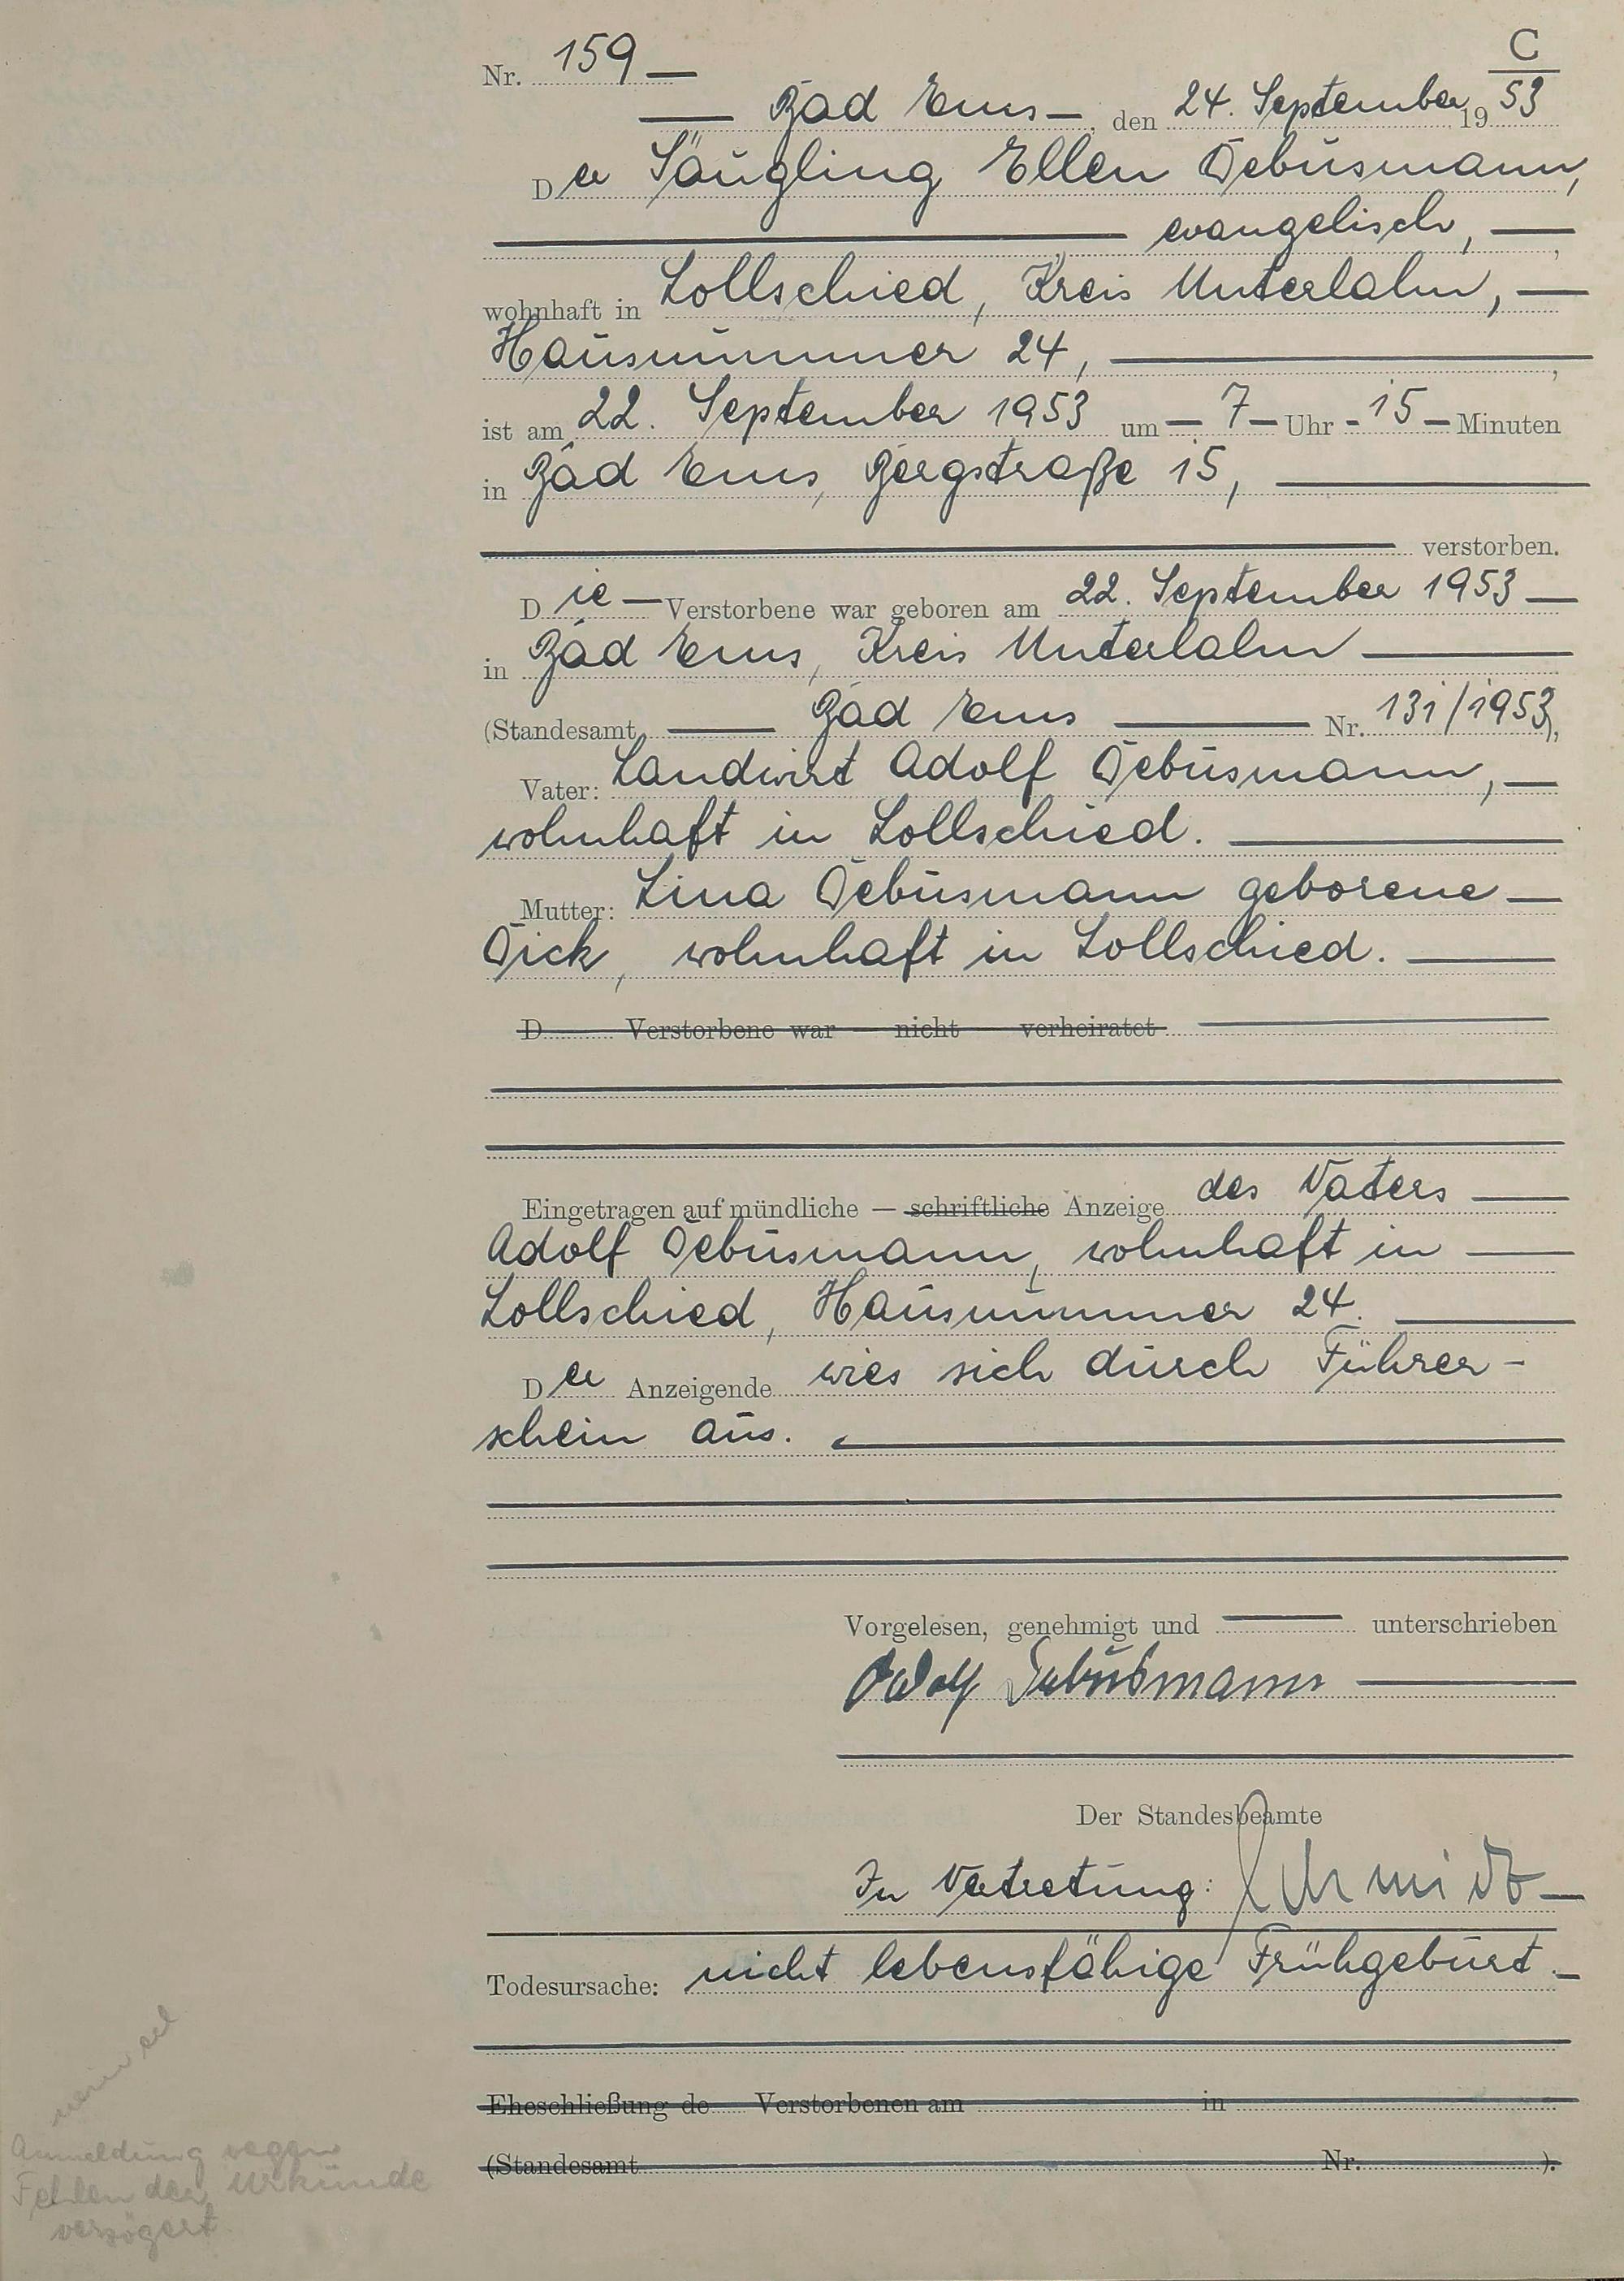 C
Nr. 159
Bad Ems, den 24. September 1953
Der Säugling Ellen Debusmann,
evangelisch,
wohnhaft in Lollschied, Kreis Unterlahn,
Hausnummer 24,
ist am 22. September 1953 um 7 Uhr 15 Minuten
in Bad Ems, Bergstraße 15,
verstorben.
Die Verstorbene war geboren am 22. September 1953
in Bad Ems, Kreis Unterlahn
(Standesamt Bad Ems Nr. 131/1953),
Vater: Landwirt Adolf Debusmann,
wohnhaft in Lollschied.
Mutter: Lina Debusmann geborene
Dick, wohnhaft in Lollschied.
D Verstorbene war nicht verheiratet
Eingetragen auf mündliche — schriftliche Anzeige des Vaters
Adolf Debusmann, wohnhaft in
Lollschied, Hausnummer 24.
Der Anzeigende wies sich durch Führer-
schein aus.
Vorgelesen, genehmigt und unterschrieben
Adolf Debusmann
Der Standesbeamte
In Vertretung: Schmidt
Todesursache: nicht lebensfähige Frühgeburt.
Eheschließung de Verstorbenen am in
(Standesamt Nr. ).
Anmeldung wegen
Fehlen der Urkunde
verzögert